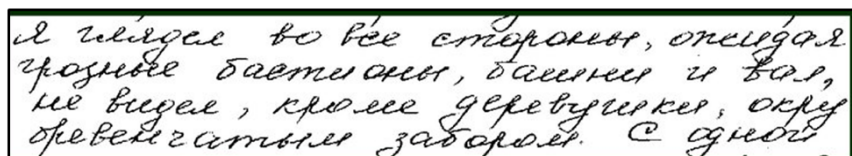 я глядел во все стороны, ожидая
грозные бастионы, башни и вал,
не видел, кроме деревушки, окру
бревенчатым забором. С одной